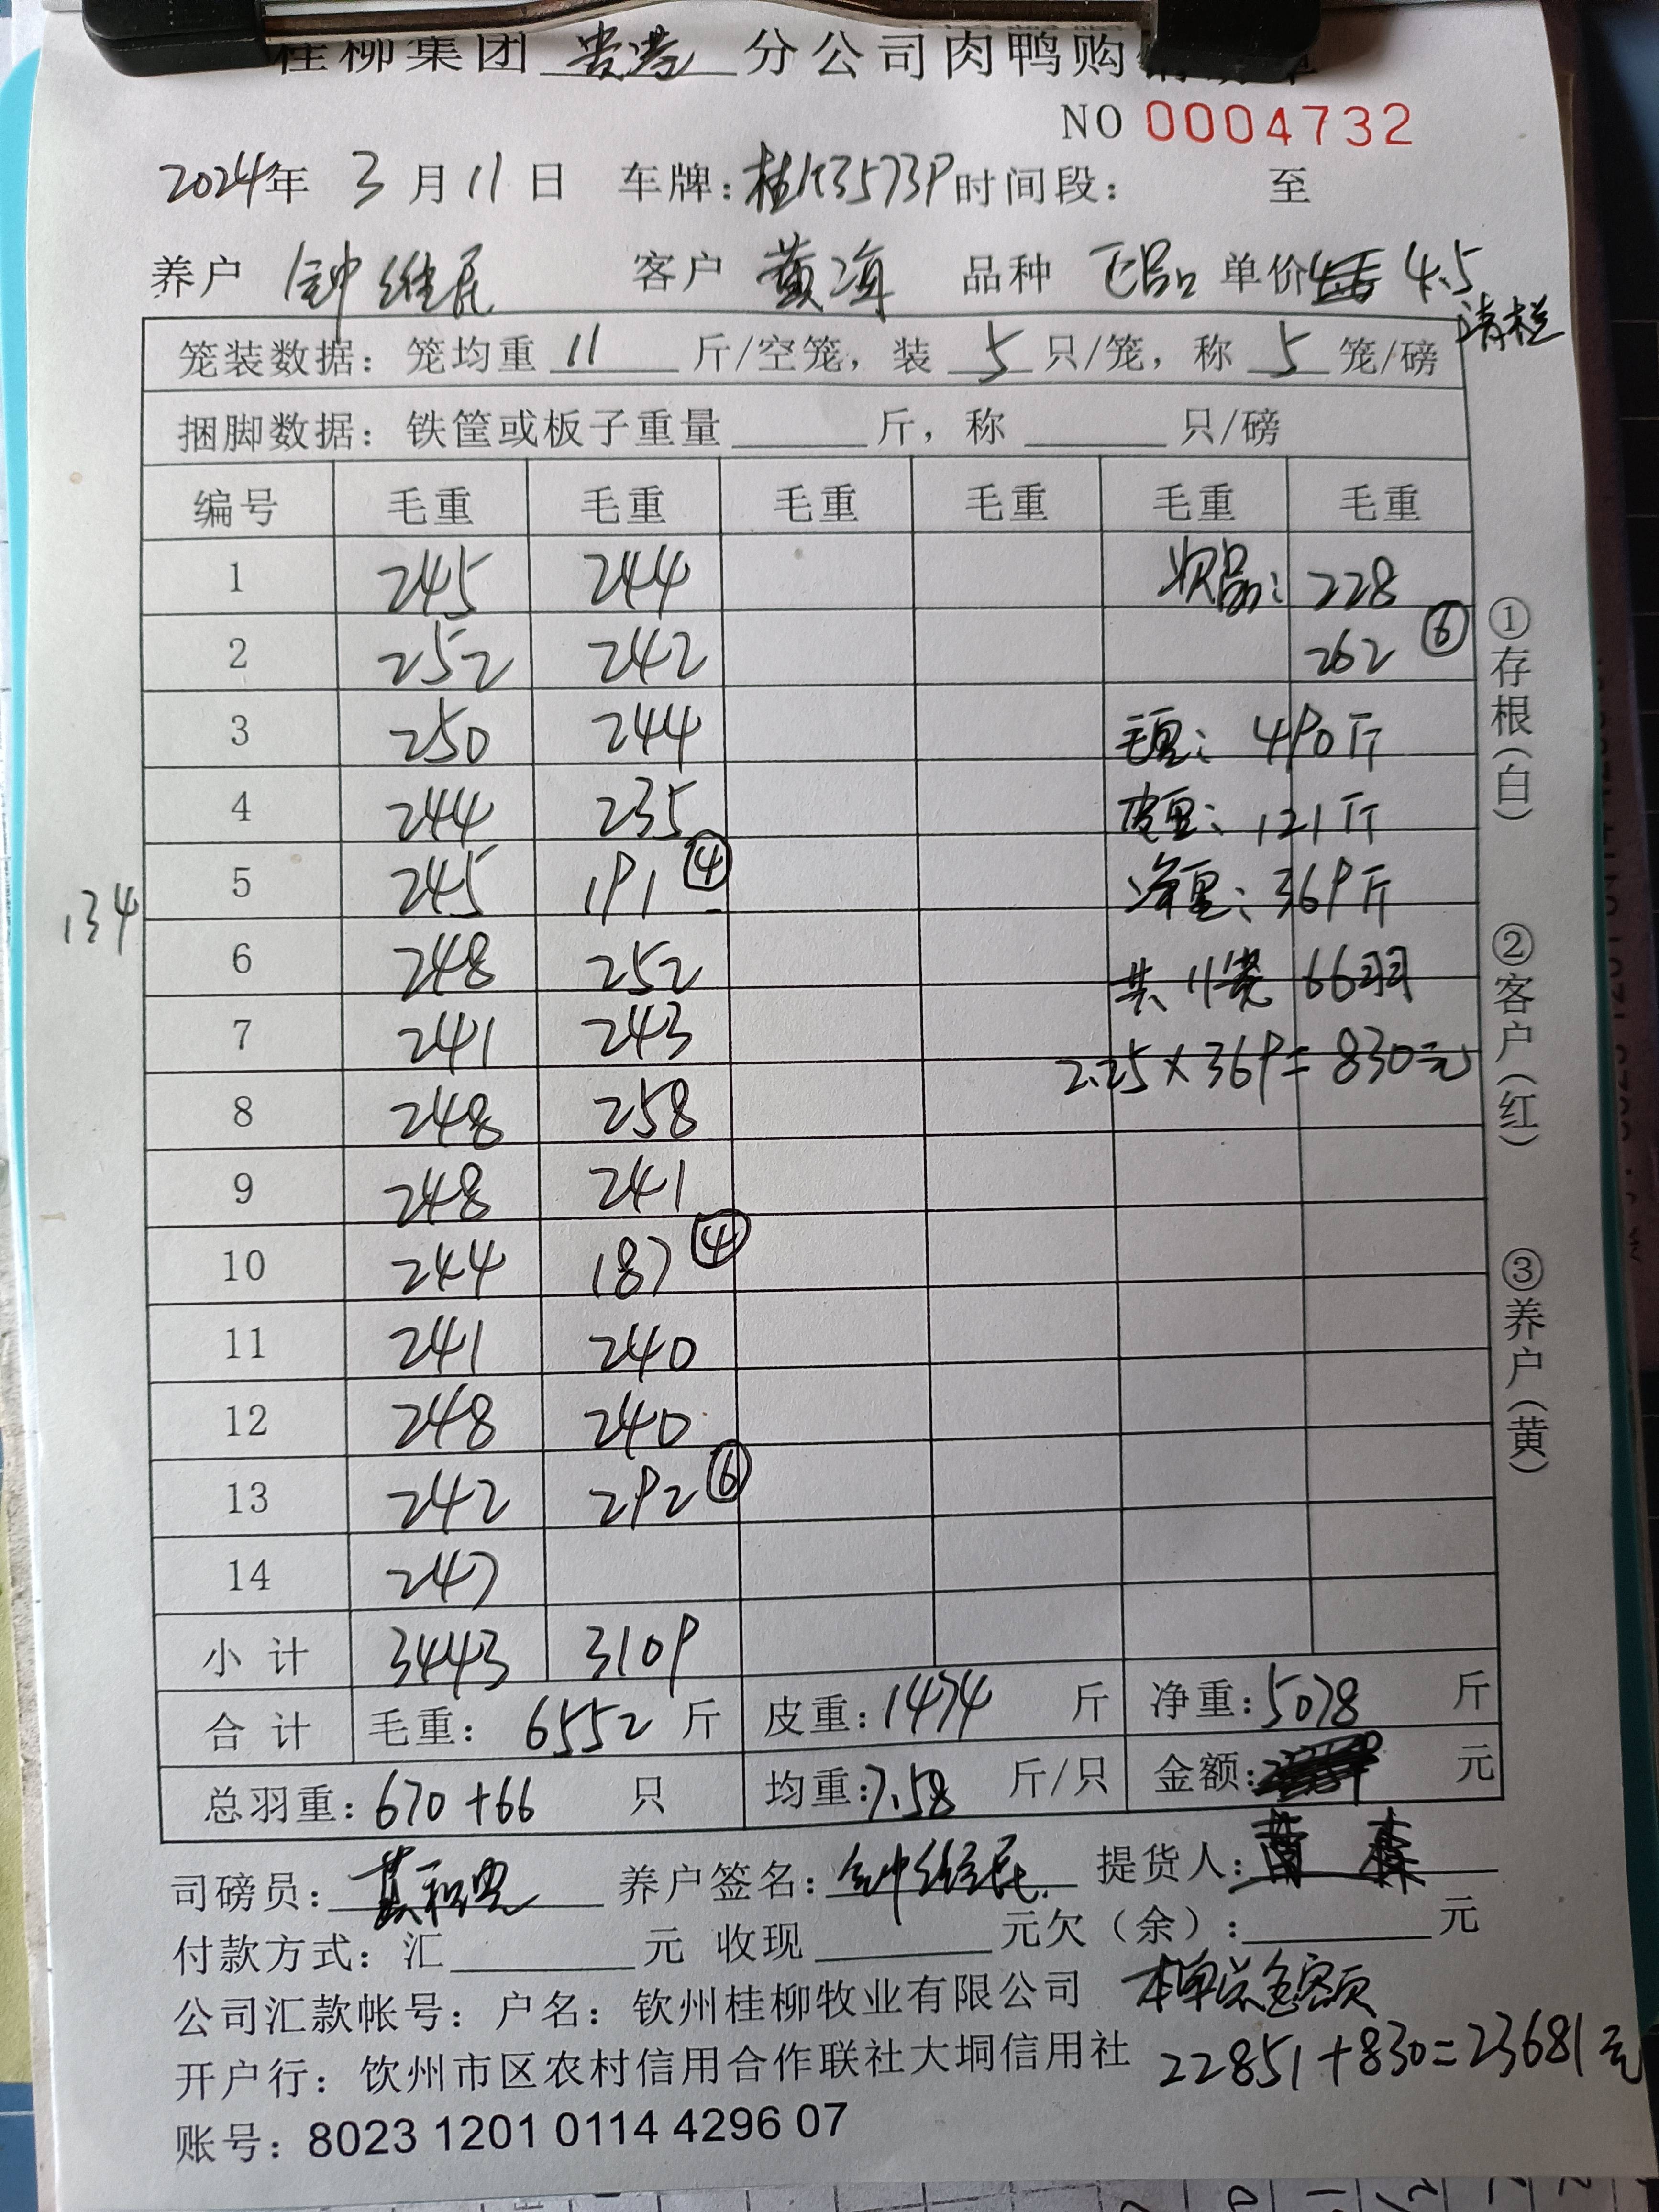 桂柳集团 贵港 分公司肉鸭购
NO 0004732
2024年 3 月 11 日 车牌:桂K3573P时间段: 至
养户 钟维民 客户 黄 品种 正品 单价 4.5
清栏
笼装数据: 笼均重 11 斤/空笼, 装 5 只/笼, 称 5 笼/磅
捆脚数据: 铁筐或板子重量 斤, 称 只/磅
编号 毛重 毛重 毛重 毛重 毛重 毛重
1 245 244 次品: 228
2 252 242 262 ⑥
3 250 244 毛重: 490斤
4 244 235 皮重: 121斤
5 245 191 ④ 净重: 369斤
134
6 248 252 共11笼 66羽
7 241 243 2.25×369=830元
8 248 258
9 248 241
10 244 187 ④
11 241 240
12 248 240
13 242 292 ⑥
14 247
小 计 3443 3109
合 计 毛重: 6552 斤 皮重: 1474 斤 净重: 5078 斤
总羽重: 670+66 只 均重: 7.58 斤/只 金额: 元
司磅员: 养户签名: 钟维民 提货人:
付款方式: 汇 元 收现 元欠(余): 元
公司汇款帐号: 户名: 钦州桂柳牧业有限公司 本单总金额
开户行: 钦州市区农村信用合作联社大垌信用社 22851+830=23681元
账号: 8023 1201 0114 4296 07
①存根(白)
②客户(红)
③养户(黄)